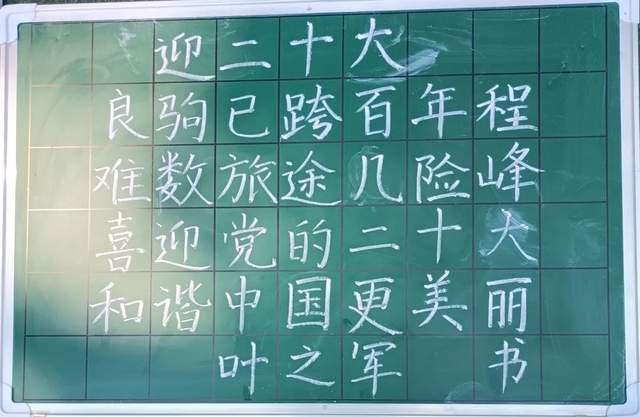 迎二十大
良驹已跨百年程
难数旅途几险峰
喜迎党的二十大
和谐中国更美丽
叶之军 书